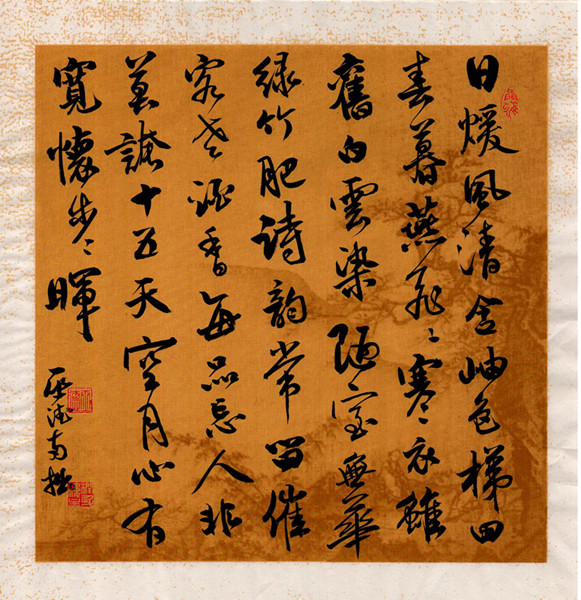 日煖風清含岫色梯田
春暮燕飛〻寒衣雖
舊白雲染陋室無華
綠竹肥詩韻常留催
客老酒香每品忘人非
莫十五天空月心有
寬懷步〻暉